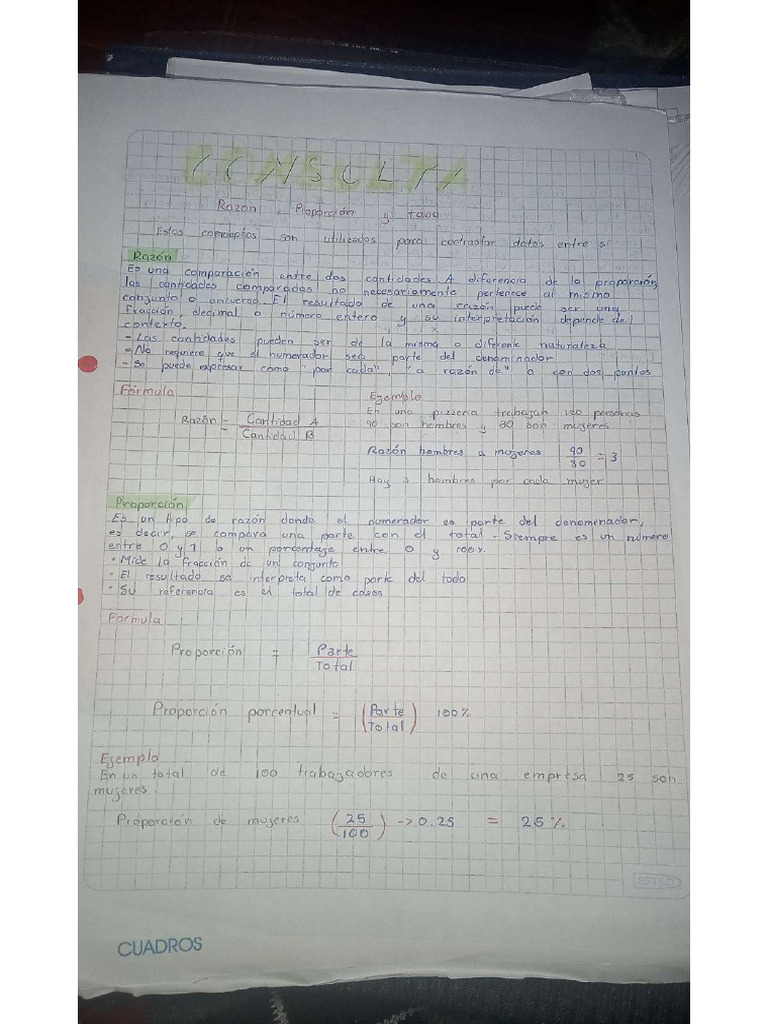 CONSULTA
Razón, Proporción y tasa
Estos conceptos son utilizados para contrastar datos entre si
Razón
Es una comparación entre dos cantidades A diferencia de la proporción
las cantidades comparadas no necesariamente pertenece al mismo
conjunto o universo. El resultado de una razón puede ser una
fracción, decimal o número entero y su interpretación depende del
contexto.
- Las cantidades pueden ser de la misma o diferente naturaleza
- No requiere que el numerador sea parte del denominador
- Se puede expresar como "por cada", "a razón de" o con dos puntos
Fórmula
Razón = Cantidad A
Cantidad B
Ejemplo
En una pizzeria trabajan 120 personas
90 son hombres y 30 son mujeres
Razón hombres a mujeres 90/30 = 3
Hay 3 hombres por cada mujer
Proporción
Es un tipo de razón donde el numerador es parte del denominador,
es decir, se compara una parte con el total - Siempre es un número
entre 0 y 1 o un porcentaje entre 0 y 100%.
• Mide la fracción de un conjunto
• El resultado se interpreta como parte del todo
• Su referencia es el total de casos
Formula
Proporción = Parte
Total
Proporción porcentual = (Parte/Total) 100%
Ejemplo
En un total de 100 trabajadores de una empresa 25 son
mujeres.
Proporción de mujeres (25/100) -> 0.25 = 25%
ESTILO
CUADROS